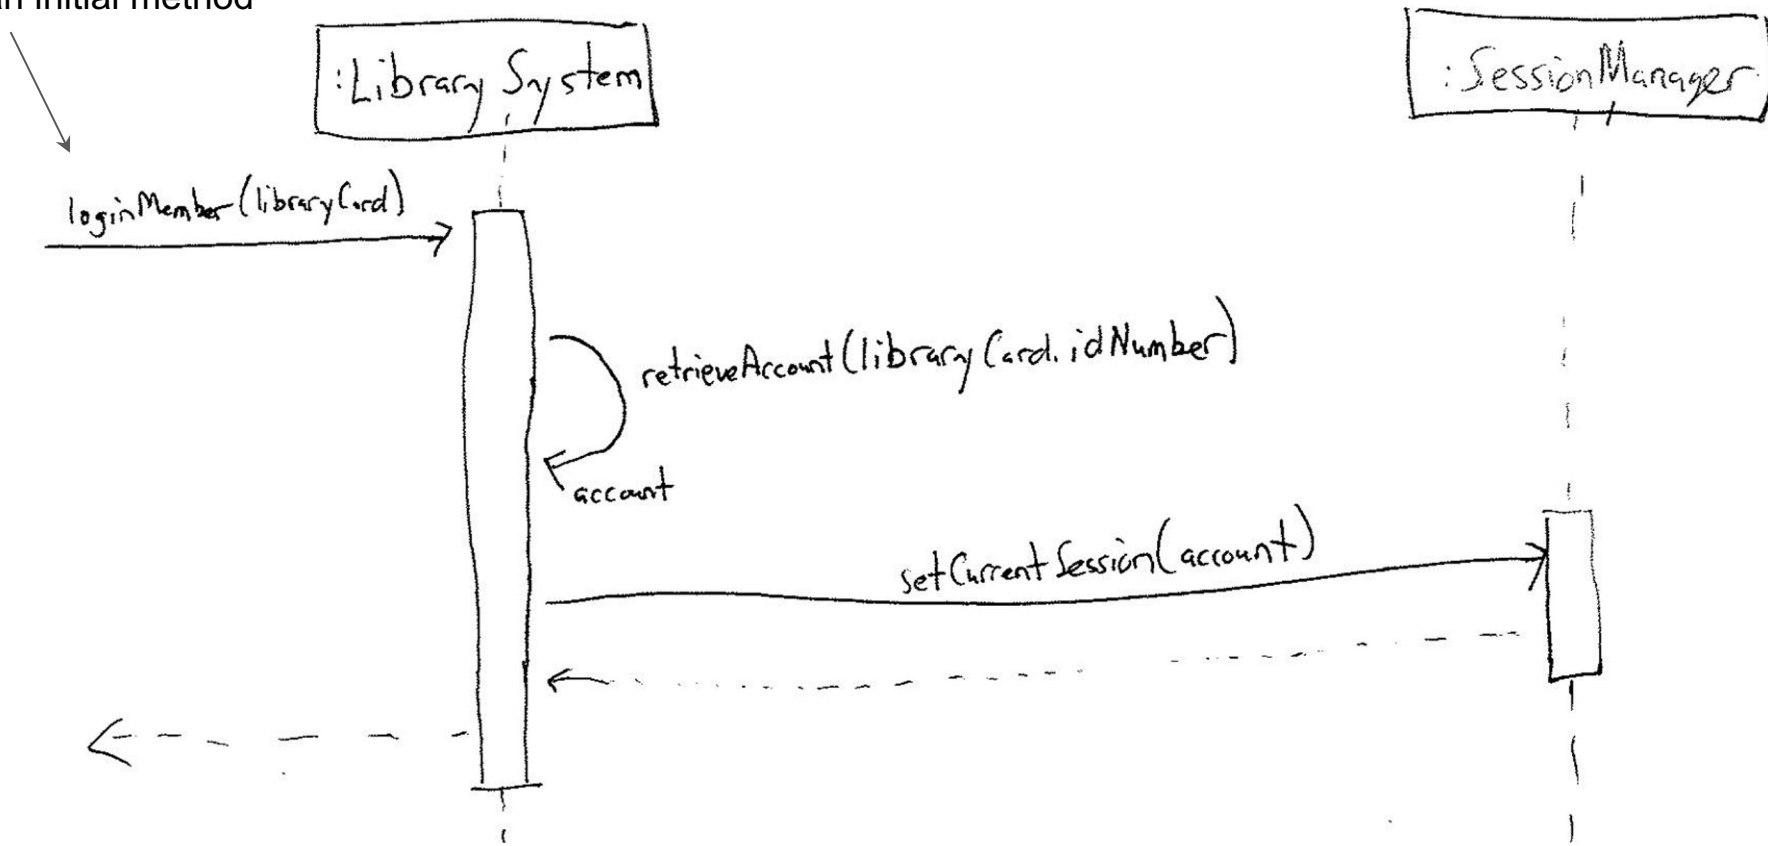 an initial method
:Library System
:SessionManager
loginMember(libraryCard)
retrieveAccount(libraryCard.idNumber)
account
setCurrentSession(account)